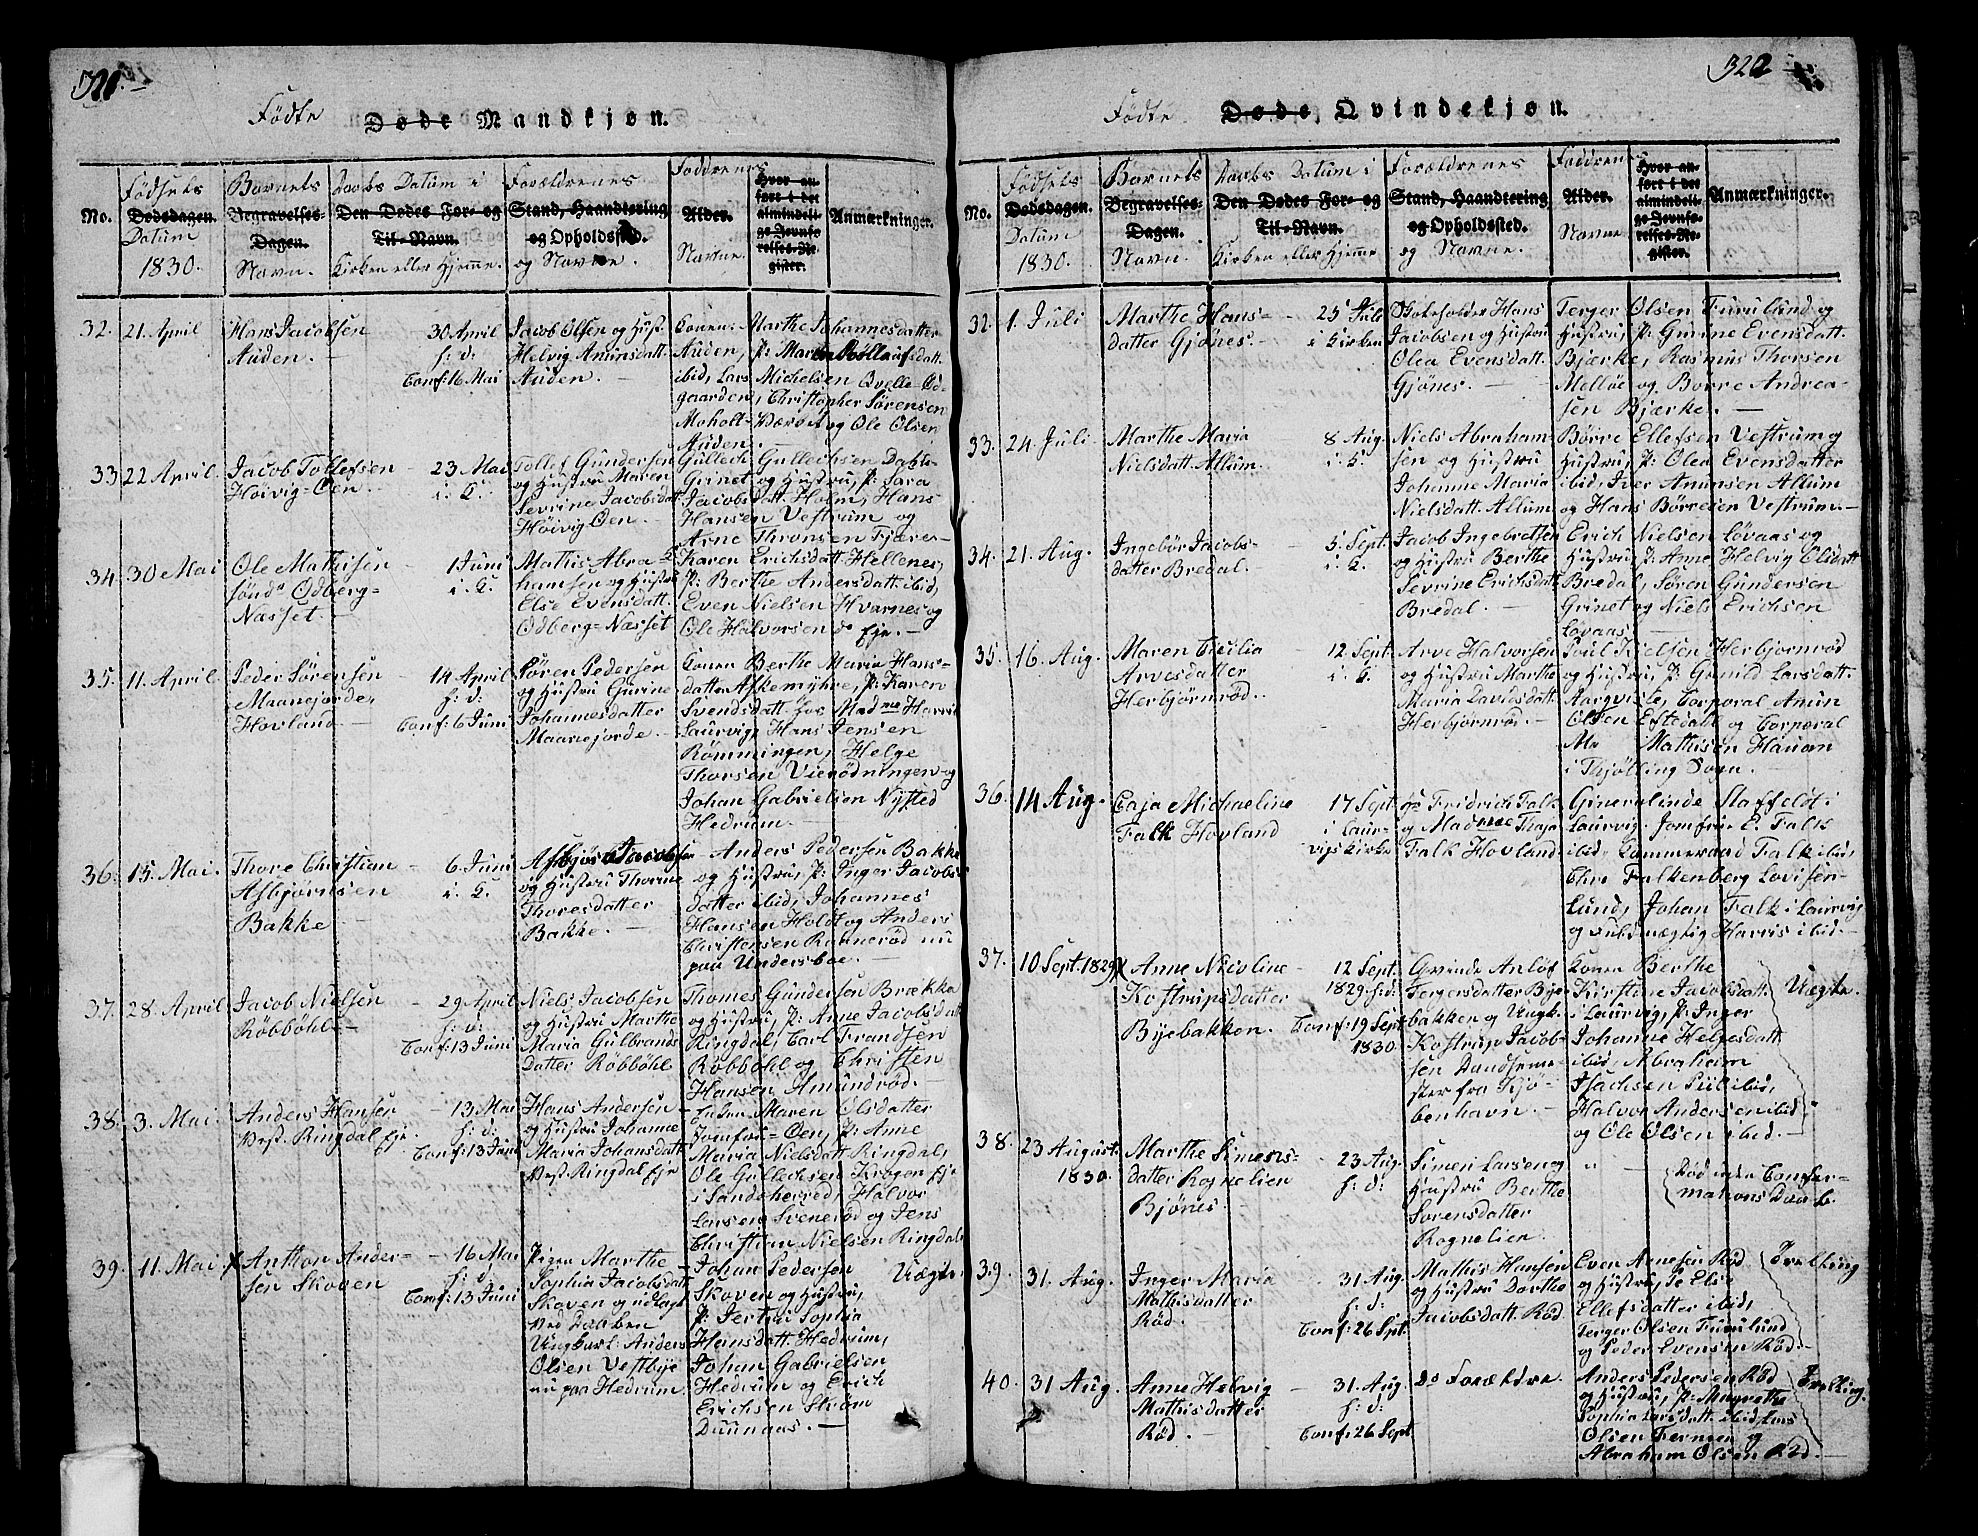 321.
Födte
Døde Mandkjøn.
No.
Födsels
Dødsdagen.
Datum
1830.
Barnets
Begravelses-
Dagen.
Navn.
Daabs Datum i
Den Dødes For- og
Til-Navn.
Kirken eller Hjemme.
Forældrenes
Stand, Haandtering
og Opholdssted.
og Navne.
Faddrenes
Alder.
Navne.
Hvor an-
ført i det
almindeli-
ge Jevnfø-
relses-Re-
gister.
Anmærkninger.
32. 21 April
Hans Jacobsen
Auden.
30 April
h: d:
Conf: 16 Mai
Jacob Olsen og Hust.
Helvig Amunsdatt.
Auden.
Konen Marthe Johannesdatter
Auden, P: Maren Rollaufsdatt.
ibid, Lars Michelsen Qvelle-Öd-
gaarden, Christopher Sörensen
Moholt- og Ole Olsen
Auden.
33 22 April.
Jacob Tollefsen
Höivig-Öen.
23 Mai
i. K.
Tollef Gundersen
og Hustru Maren
Sevrine Jacobsdatt.
Höivig Öen.
Gullech Gullechsen Dahl-
Grinet og Hustru, P: Sara
Jacobsdatt. Holm, Hans
Hansen Vestrum og
Arne Thronsen Fjære-
34. 30 Mai
Ole Mathisen
sönd. Odberg-
Næsset.
1 Juni
i. K.
Mathis Abra-
hamsen og Hustru
Else Evensdatt.
Odberg-Næsset
Karen Erichsdatt. Hellenes,
P: Berthe Andersdatt. ibid,
Even Nielsen Hvarnes og
Ole Halvorsen do Eje.
35. 11 April.
Peder Sörensen
Maanejorde,
Hovland.
14 April
h: d:
Conf: 6 Juni
Sören Pedersen
og Hustru Gurine
Johannesdatter
Maanejorde.
Konen Berthe Maria Hans-
datter Askemyhre, P: Karen
Svendsdatt. hos Madme Harris
Laurvig, Hans Jensen
Römmingen, Helge
Thorsen Vierödningen og
Johan Gabrielsen Nysted
Hedrum.
36. 15. Mai.
Thore Christian
Asbjörnsen
Bakke
6 Juni
i. K.
Asbjörn Jacobsen
og Hustru Thorine
Thoresdatter
Bakke.
Anders Pedersen Bakke
og Hustru, P: Inger Jacobs-
datter ibid, Johannes
Hansen Holdt og Anders
Christensen Ranneröd nu
paa Undersboe.
37. 28. April
Jacob Nielsen
Röbböhl
29 April
h: d:
Conf: 13 Juni
Niels Jacobsen
og Hustru Marthe
Maria Gulbrands-
datter Röbböhl
Thomes Gundersen Brække
og Hustru, P: Anne Jacobsdatt.
Ringdal, Carl Frandsen
Röbböhl og Christen
Hansen Amundröd.
38. 3. Mai.
Anders Hansen
Vest. Ringdal Eje.
13 Mai
h: d:
Conf: 13 Juni
Hans Andersen
og Hustru Johanne
Maria Johansdatt.
Vest. Ringdal Eje
Enken Maren Olsdatter
Jomfru-Öen, P: Anne
Maria Nielsdatt. Ringdal,
Ole Gullechsen Krogen Eje
i Sandeherred, Halvor
Larsen Sveneröd og Jens
Christian Nielsen Ringdal
39. 11. Mai.
Anthon Ander-
sen Skoven
16 Mai
h: d:
Conf: 13 Juni
Pigen Marthe
Sophia Jacobsdatt.
Skoven og udlagt
ved Daaben
Ungkarl Anders
Olsen Vestbye
nu paa Hedrum
Johan Pedersen
Skoven og Hustru,
P: Jertru Sophia
Hansdatt. Hedrum,
Johan Gabrielsen
Hedrum og Erich
Erichsen Ström
Duunaas.
Uægte.
322
Födte
Døde, Qvindekjøn.
No.
Födsels
Dødsdagen.
Datum
1830.
Barnets
Begravelses-
Dagen.
Navn.
Daabs Datum i
Den Dødes For- og
Til-Navn.
Kirken eller Hjemme
Forældrenes
Stand, Haandtering
og Opholdssted.
og Navne.
Faddrenes
Alder.
Navne
Hvor an-
ført i det
almindeli-
ge Jevnfø-
relses-Re-
gister.
Anmærkninger.
32. 1. Juli
Marthe Hans-
datter Gjönes.
25 Juli
i Kirken
Hans
Jacobsen og Hustru
Olea Evensdatt.
Gjönes.
Terger Olsen Furulund og
Hustru, P: Gurine Evensdatt.
Bjærke, Rasmus Thorsen
Melløe og Borre Andrea-
sen Bjærke.
33. 24. Juli.
Marthe Maria
Nielsdatt. Allum.
8 Aug.
i. K.
Niels Abraham-
sen og Hustru
Johanne Maria
Nielsdatt. Allum
Börre Ellefsen Vestrum og
Hustru, P: Olea Evensdatter
ibid, Iver Amunsen Allum
og Hans Börresen Vestrum.
34. 21. Aug.
Ingebör Jacobs-
datter Bredal.
5. Sept.
i. K.
Jacob Ingebretsen
og Hustru Berthe
Sevrine Erichsdatt.
Bredal.
Erich Nielsen Lövaas og
Hustru, P: Anne Helvig Elisdatt.
Bredal, Sören Gundersen
Grinet og Niels Erichsen
Lövaas
35. 16. Aug.
Maren Cicilia
Arvesdatter
Herbjörnröd.
12. Sept.
i. K.
Arve Halvorsen
og Hustru Marthe
Maria Davidsdatt.
Herbjörnröd.
Poul Nielsen Herbjörnröd
og Hustru, P: Gunild Larsdatt.
Aargviste, Corporal Amun
Olsen Eftedahl og Corporal
Mathisen Hauan
i Thjölling Sogn.
36. 14 Aug.
Caja Michaeline
Falk Hovland
17 Sept.
i Laur-
vigs Kirke
Fridrich Falk
og Madame Thaja
Falk Hovland.
Generalinde Staffeldt i
Laurvig, Jomfru E. Falk
ibid, Cammeraad Falk ibid,
Chr. Falkenberg Lovisen-
Lund, Johan Falk i Laurvig
og Fuldmægtig Harris ibid.
37. 10 Sept. 1829
Anne Nicoline
Kostrupsdatter
Byebakken.
12 Sept.
1829. h: d:
Conf: 19 Sept.
1830.
Qvinde Anlöf
Tergersdatter Bye-
bakken og Ungk.
Kostrup Jacob-
sen Landsem-
ster fra Kjö-
benhavn.
Konen Berthe
Kirstine Jacobsdatt.
i Laurvig, P: Inger
Johanne Helgesdatt.
ibid, Abraham
Isachsen Piil ibid,
Halvor Andersen ibid
og Ole Olsen ibid.
Uægte.
38. 23 August.
1830.
Marthe Simens-
datter Rognelien
Bjönes.
23 Aug.
h: d:
Simen Larsen og
Hustru Berthe
Sorensdatter
Rognelien.
Död uden Confer-
mations Daab.
39. 31. Aug.
Inger Maria
Mathisdatter
Röd.
31 Aug.
h: d:
Conf: 26 Spt.
Mathis Hansen
og Hustru Dorthe
Jacobsdatt. Röd
Even Arnesen Röd
og Hustru, P: Elie
Ellefsdatter ibid,
Terger Olsen Furulund
og Peder Evensen Röd.
Tvelling
40. 31 Aug.
Anne Helvig
Mathisdatter
Röd.
31. Aug.
h: d:
Conf: 26 Sept
do Forældre.
Anders Pedersen Röd
og Hustru, P: Magrethe
Sophia Larsdatt. ibid, Lars
Olsen Fermen og
Abraham Olsen Röd.
Tvelling.